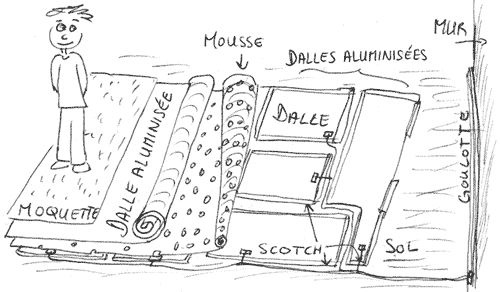 MOUSSE
DALLES ALUMINISÉES
MUR
DALLE ALUMINISÉE
DALLE
GOULOTTE
MOQUETTE
SCOTCH
SOL